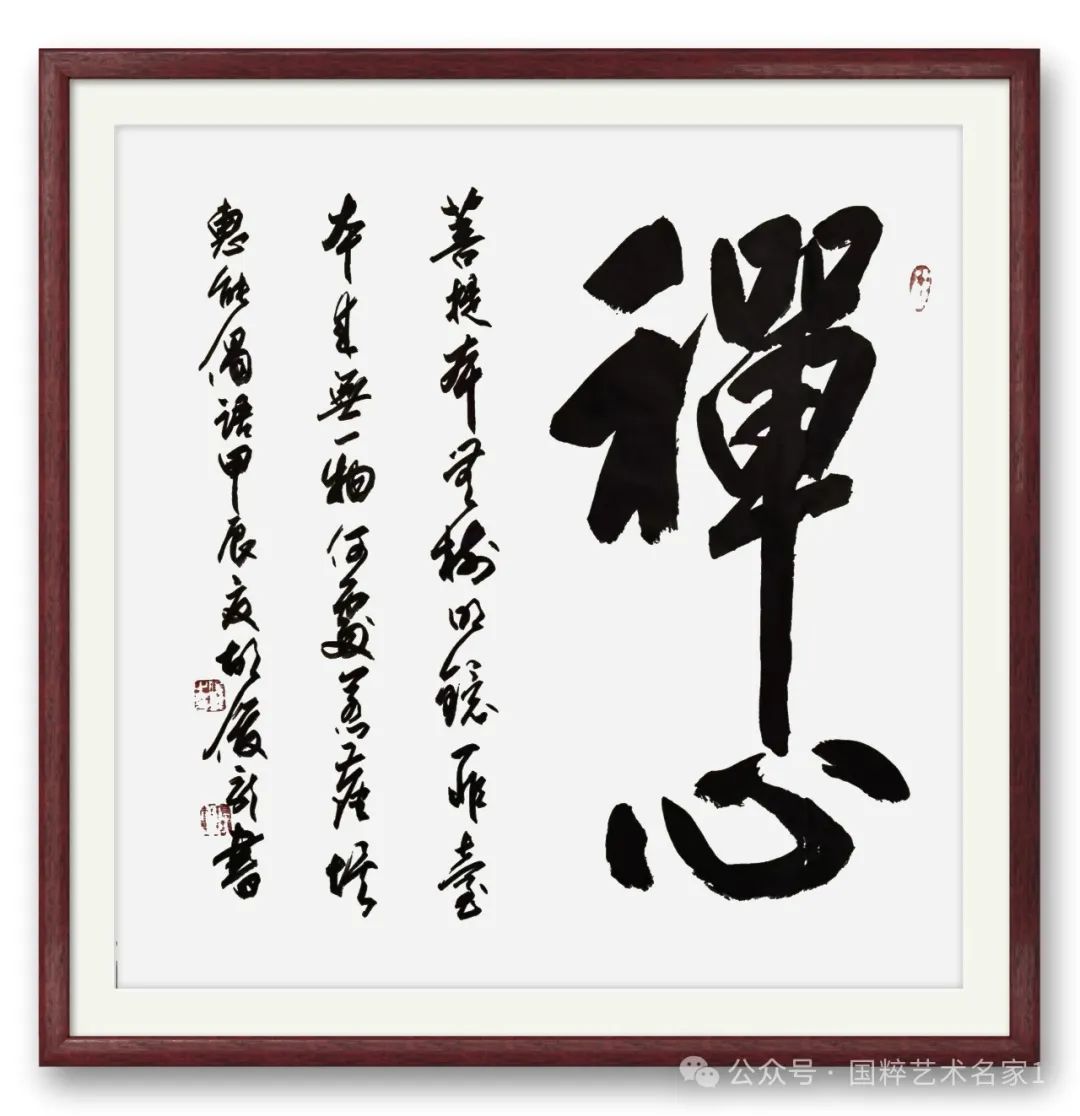 禪心
菩提本無樹明鏡非臺
本来無一物何處惹塵埃
惠能偈語甲辰夏胡書
公众号·国粹艺术名家1